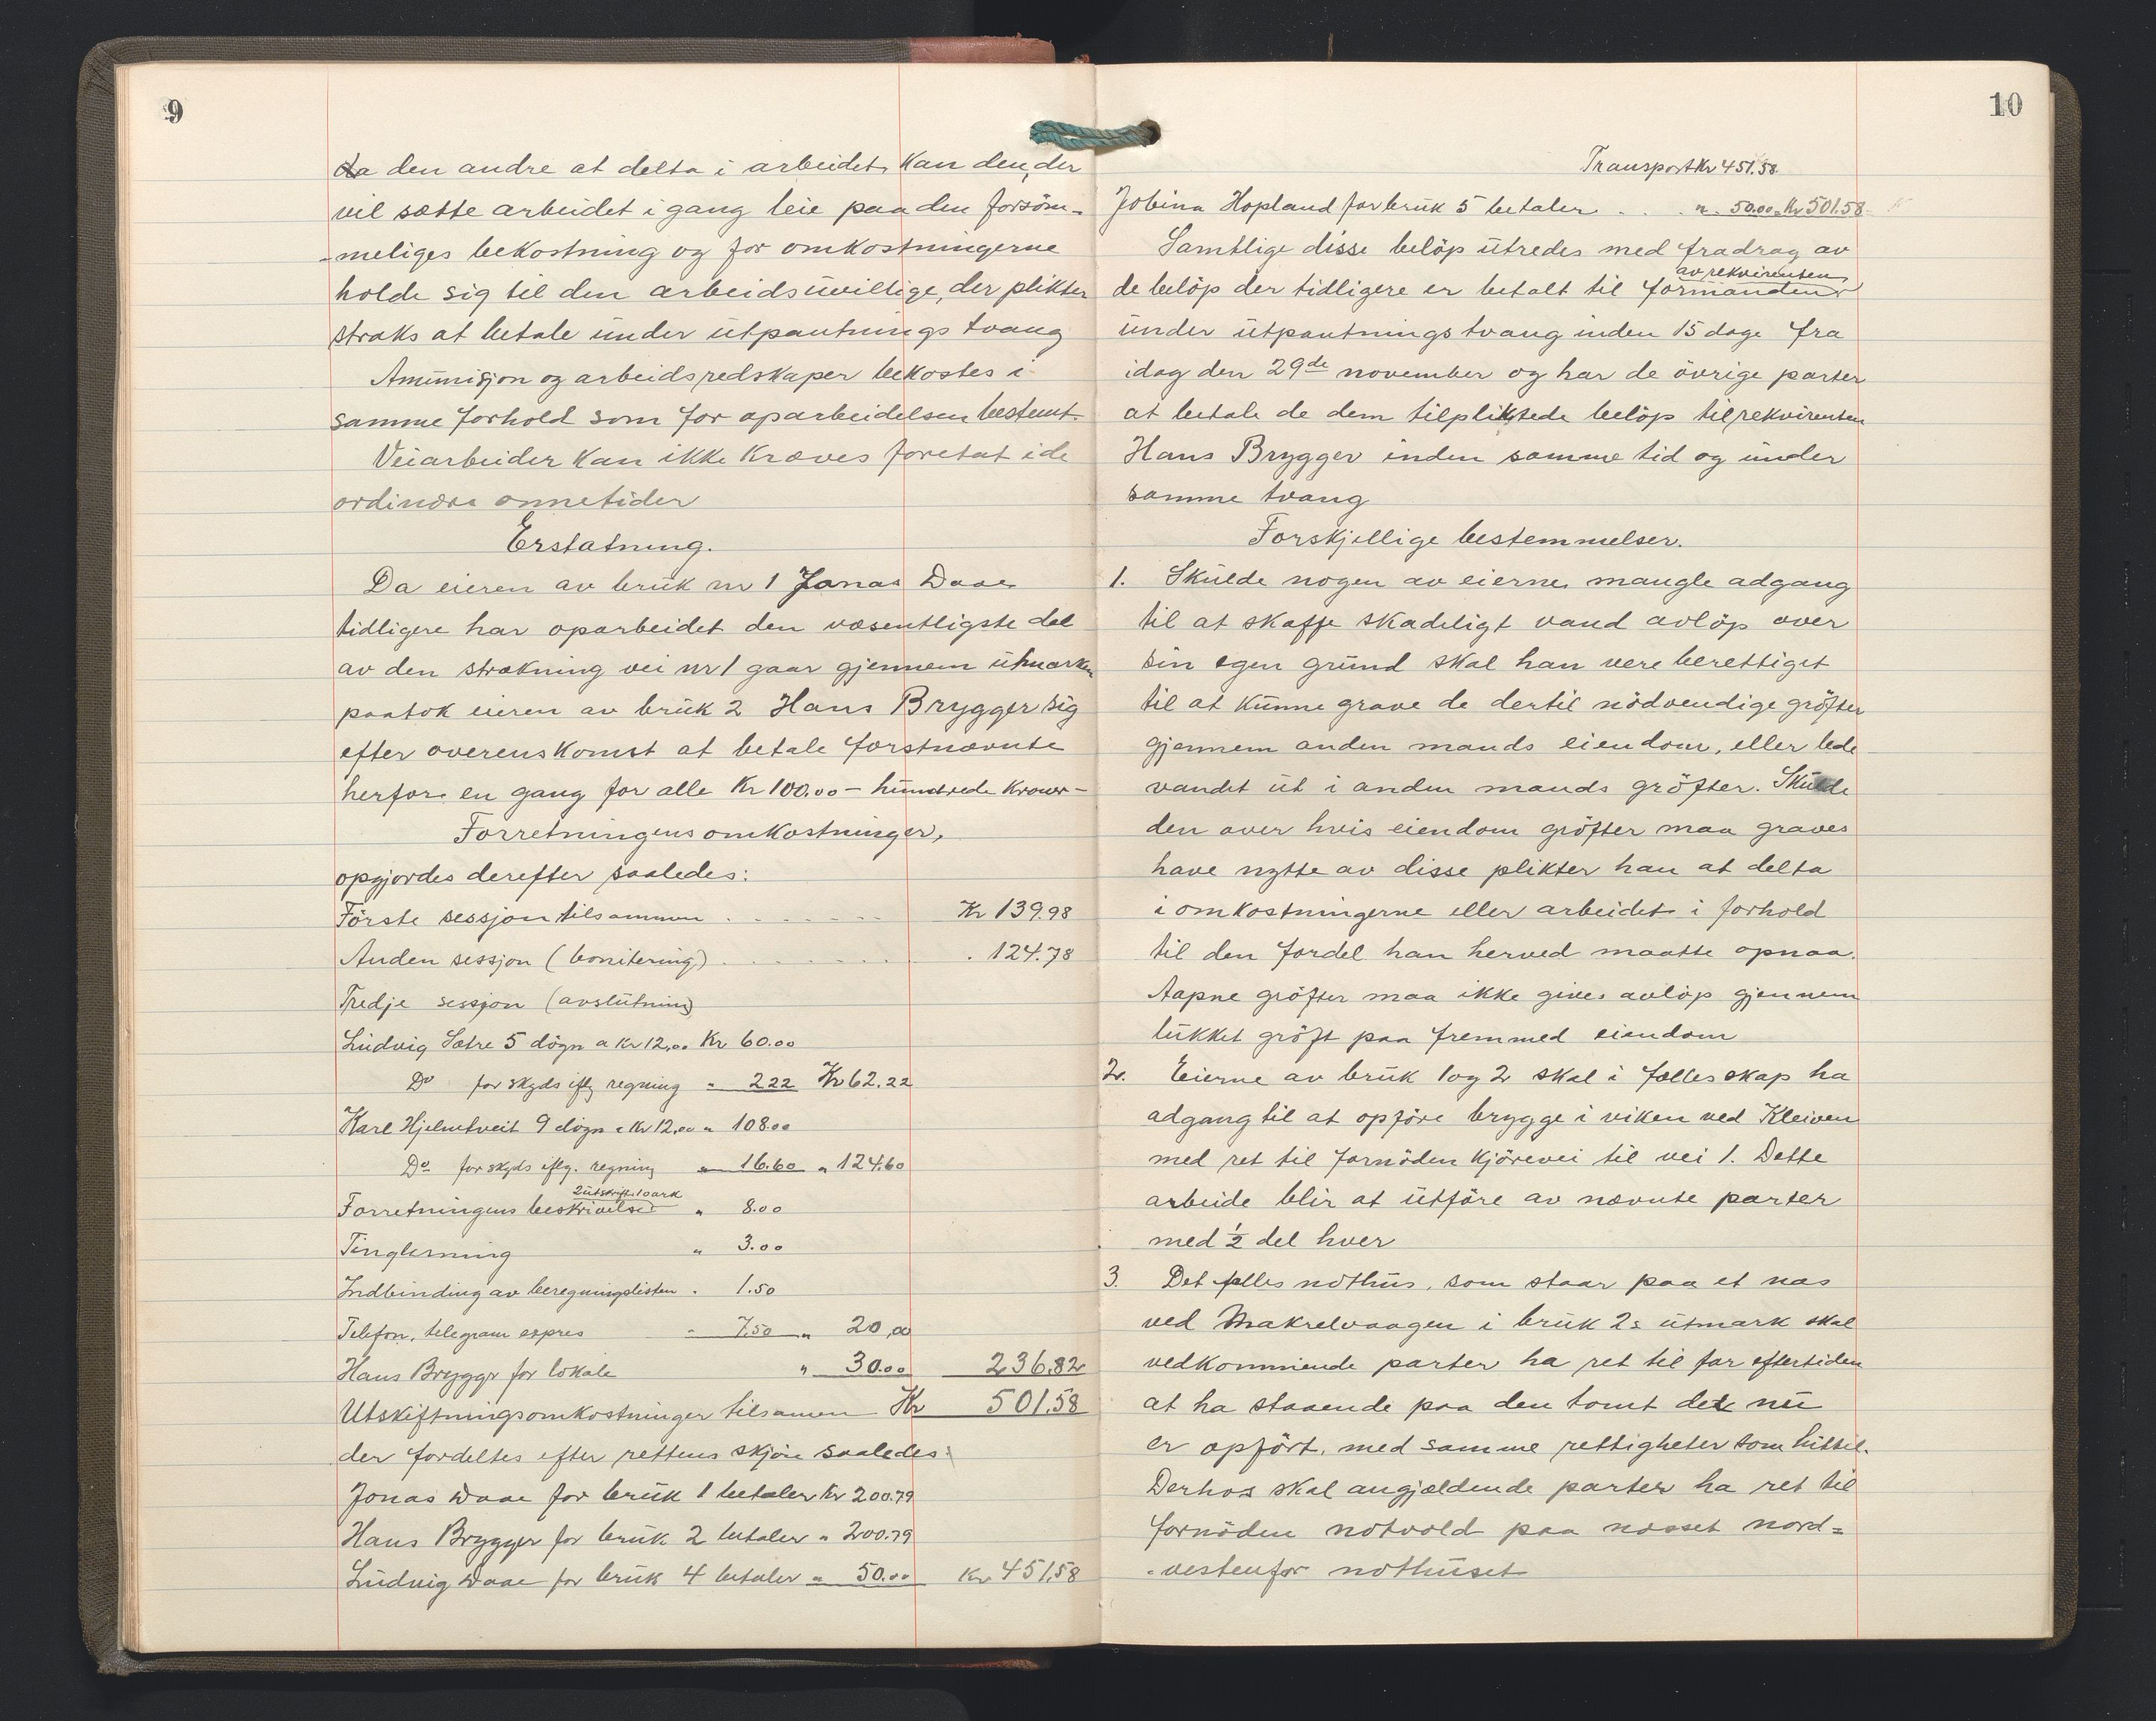 9
da den andre at delta i arbeidet kan den, der
vil sætte arbeidet i gang leie paa den forsöm-
-meliges bekostning og for omkostningerne
holde sig til den arbeidsuvillige, der plikter
straks at betale under utpantnings tvang
Amunisjon og arbeidsredskaper bekostes i
samme forhold som for oparbeidelsen bestemt.
Veiarbeider kan ikke kræves foretat i de
ordinære onnetider
Erstatning.
Da eieren av bruk nr 1 Jonas Daae
tidligere har oparbeidet den væsentligste del
av den strækning vei nr 1 gaar gjennem utmarken
paatok eieren av bruk 2 Hans Brygger sig
efter overenskomst at betale førstnævnte
herfor en gang for alle Kr 100.00 - hundrede kroner -
Forretningens omkostninger,
opgjordes derefter saaledes:
Förste sessjon tilsammen . . . . . . Kr 139.98
Anden sessjon (bonitering) . . . . . . . 124.78
Tredje sessjon (avslutning)
Ludvig Sætre 5 dögn a Kr 12,00 Kr 60.00
Do for skyds iflg regning " 2.22 Kr 62.22
Karl Hjelmtveit 9 dögn a Kr 12,00 " 108.00
Do for skyds iflg. regning " 16.60 " 124.60
2 utskrift 10 ark
Forretningens beskrivelse " 8.00
Tinglesning " 3.00
Indbinding av beregningslisten " 1.50
Telefon, telegram expres " 7.50 " 20,00
Hans Brygger for lokale " 30.00 236.82
Utskiftningsomkostninger tilsamen Kr 501.58
der fordeltes efter rettens skjön saaledes:
Jonas Daae for bruk 1 betaler Kr 200.79
Hans Brygger for bruk 2 betaler " 200.79
Ludvig Daae for bruk 4 betaler " 50.00 Kr 451,58
10
Transport Kr 451.58
Jobina Hopland for bruk 5 betaler . . . " 50.00 Kr 501.58
Samtlige disse belöp utredes med fradrag av
av rekvirenten
de belöp der tidligere er betalt til formanden
under utpantnings tvang inden 15 dage fra
idag den 29de november og har de övrige parter
at betale de dem tilpliktede belöp til rekvirenten
Hans Brygger inden samme tid og under
samme tvang
Forskjellige bestemmelser.
1. Skulde nogen av eierne mangle adgang
til at skaffe skadeligt vand avlöp over
sin egen grund skal han være berettiget
til at kunne grave de dertil nödvendige gröfter
gjennem anden mands eiendom, eller lede
vandet ut i anden mands gröfter. Skulde
den over hvis eiendom gröfter maa graves
have nytte av disse plikter han at delta
i omkostningerne eller arbeidet i forhold
til den fordel han herved maatte opnaa.
Aapne gröfter maa ikke gives avlöp gjennem
lukket gröft paa fremmed eiendom
2. Eierne av bruk 1 og 2 skal i fællesskap ha
adgang til at opföre brygge i viken ved Kleiven
med ret til fornöden kjörevei til vei 1. Dette
arbeide blir at utföre av nævnte parter
med 1/2 del hver
3. Det fælles nothus, som staar paa et næs
ved Makrelvaagen i bruk 2s utmark skal
vedkommende parter ha ret til for eftertiden
at ha staaende paa den tomt det nu
er opfört, med samme rettigheter som hittil.
Derhos skal angjældende parter ha ret til
fornöden notvold paa næsset nord=
-vestenfor nothuset